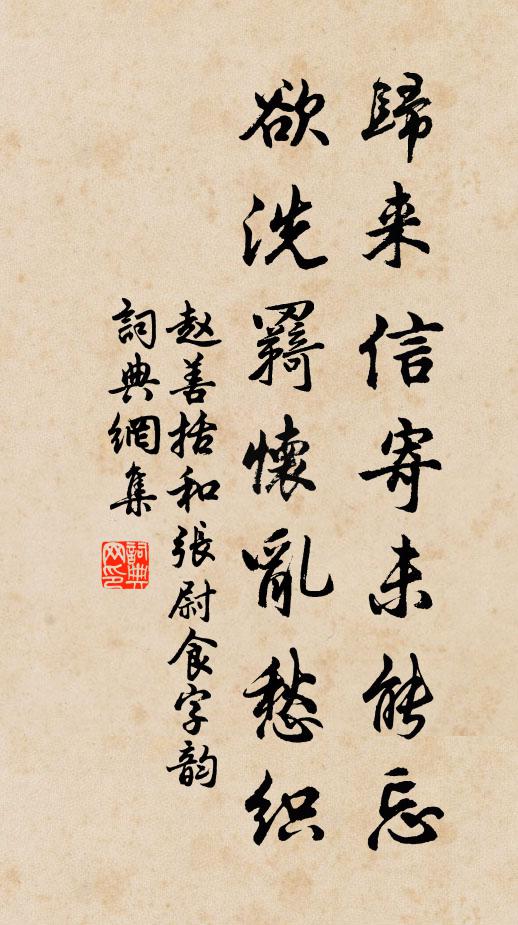 歸来信寄未能忘
欲洗羇懷亂愁织
赵善括和張尉食字韵
詞典網集
詞典网印